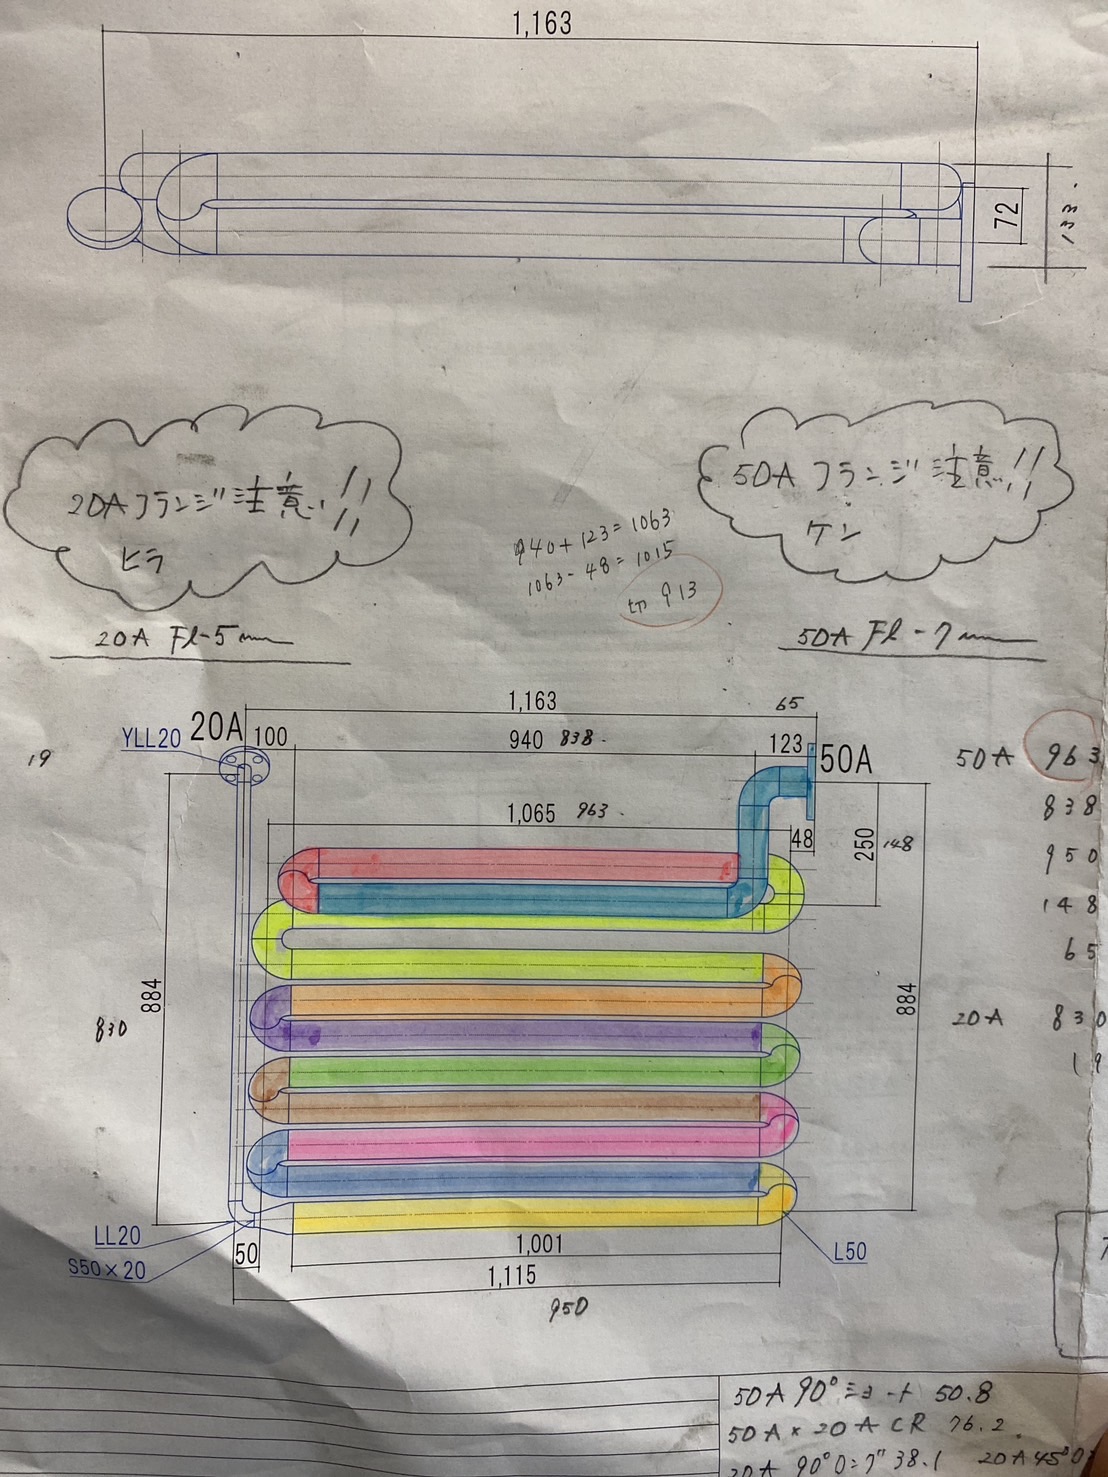 1,163
72
133.
20Aフランジ注意!!
ヒラ
50Aフランジ注意!!
ケン
940+123=1063
1063-48=1015
913
20A Fl-5mm
50A Fl-7mm
1,163
65
YLL20
20A
100
940
838
123
50A
19
50A 963
838
950
148
65
20A 830
19
1,065
963
48
250
148
884
830
884
LL20
S50×20
50
1,001
L50
1,115
950
50A 90°ショート 50.8
50A×20A CR 76.2
20A 90°ロング 38.1
20A45°ロ